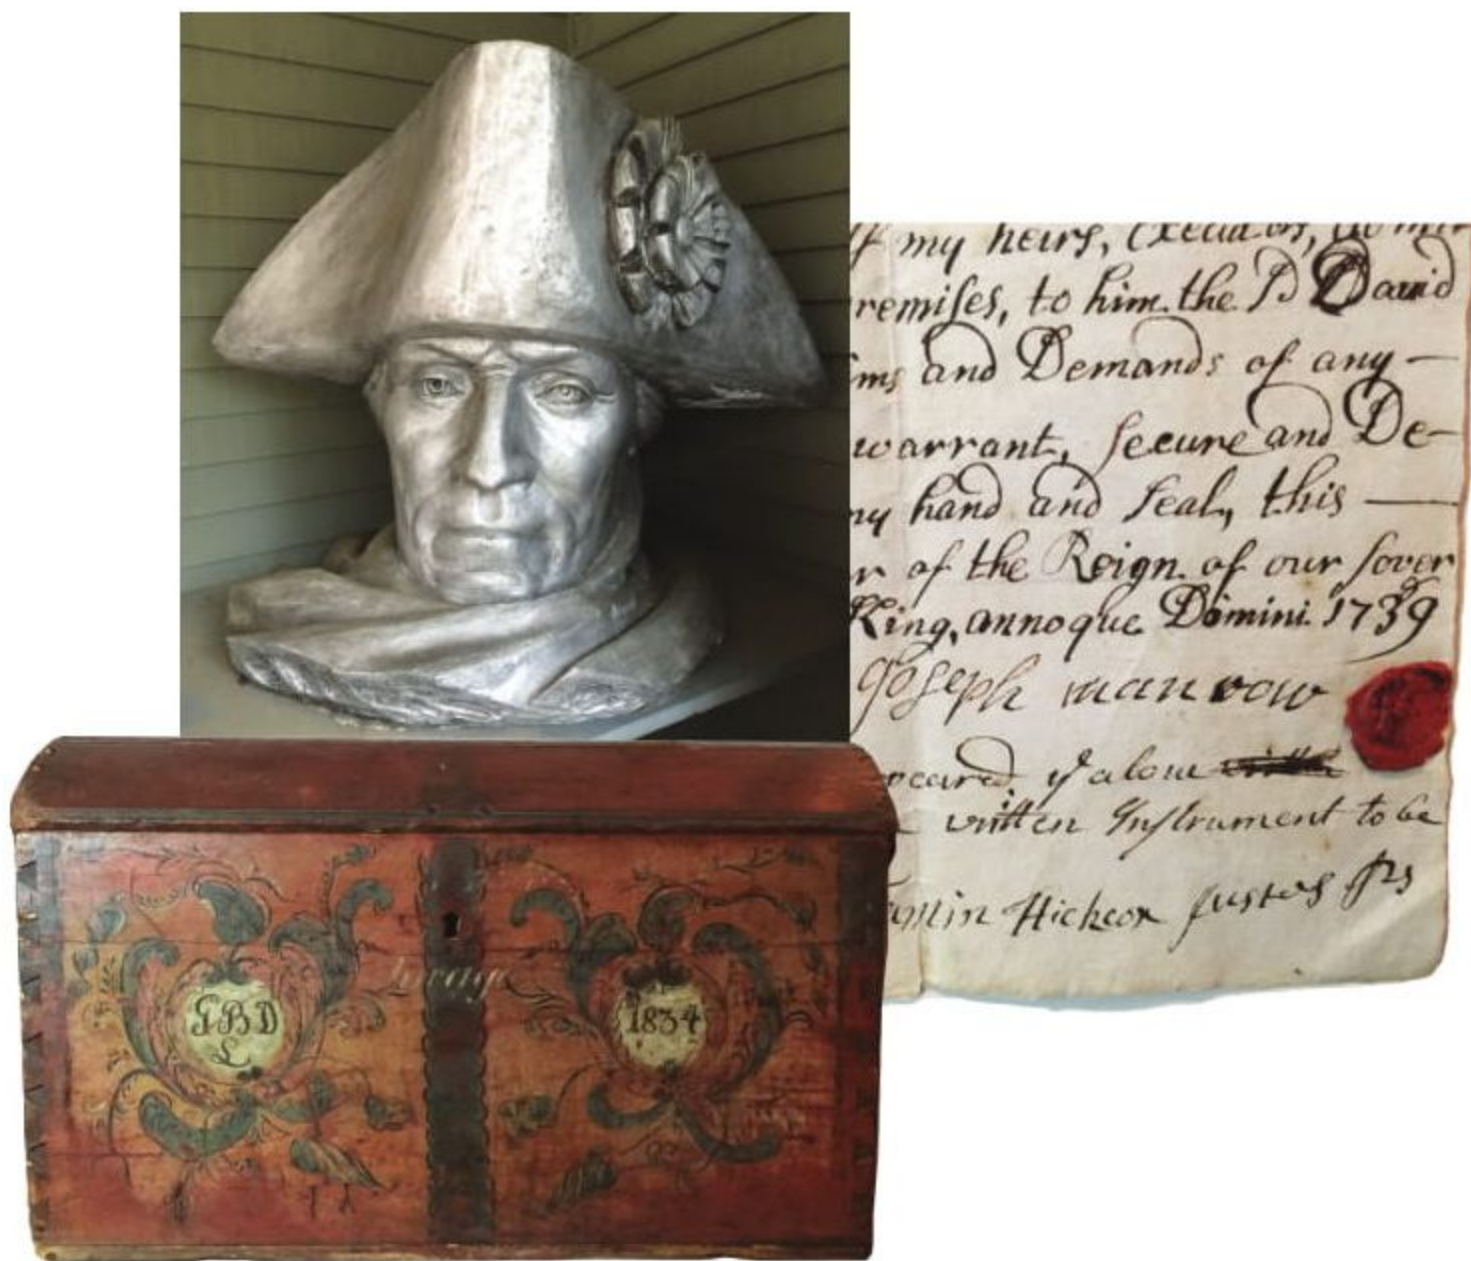 my heirs,
to him the sd David
and Demands of any —
warrant, secure and De-
hand and seal, this —
of the Reign of our sover
King, annoque Domini 1739
Joseph manrow
written Instrument to be
Hickcox
GBD
L
1834